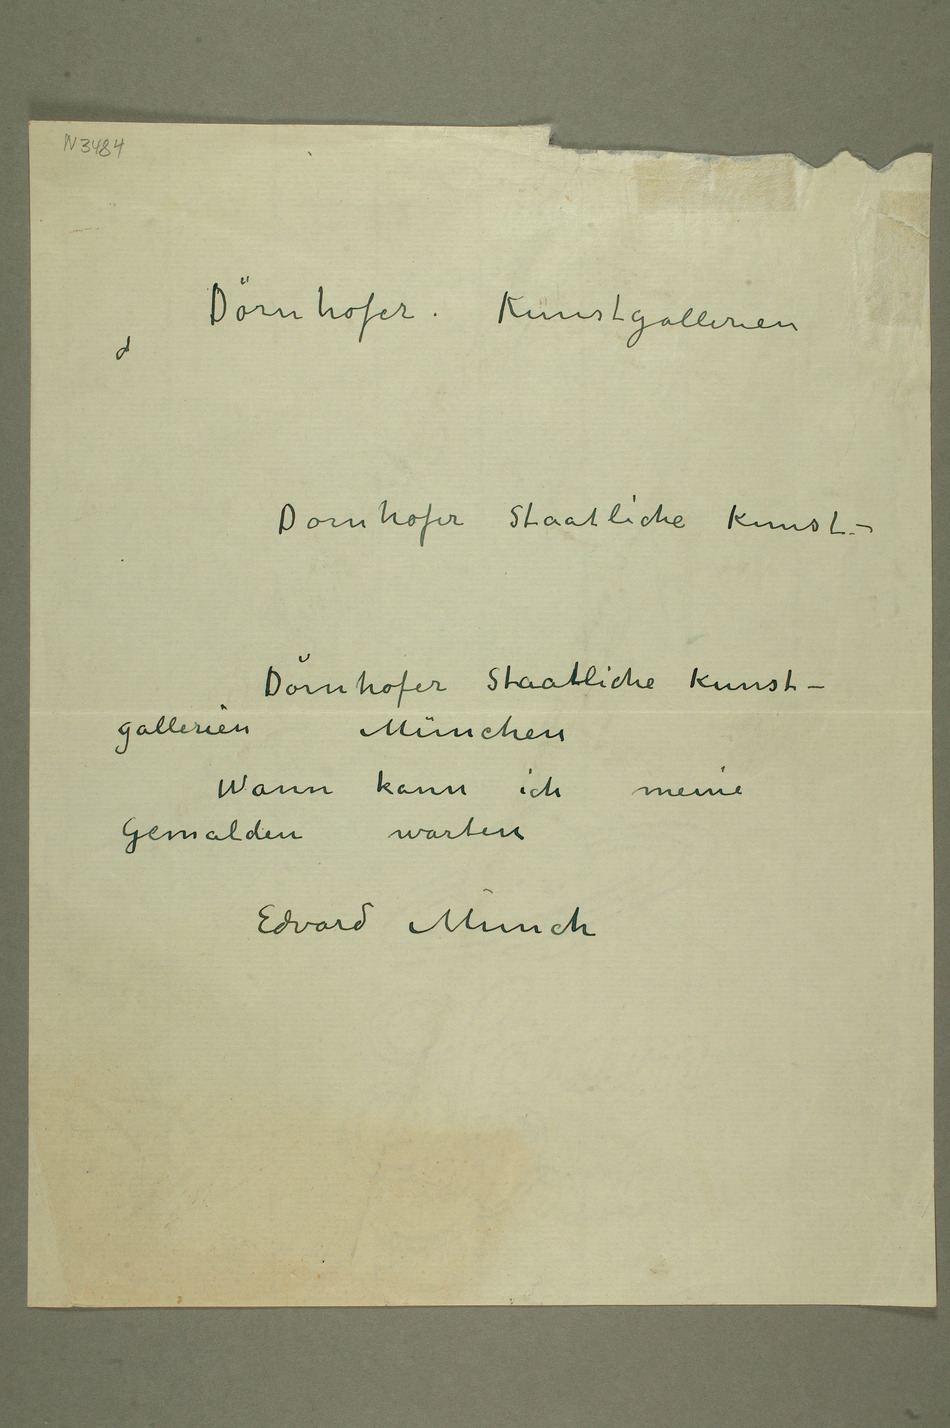 N3484
Dörnhofer. Kunstgallerien
d
Dornhofer Staatliche Kunst-
Dörnhofer Staatliche Kunst-
gallerien München
Wann kann ich meine
Gemalden warten
Edvard Munch